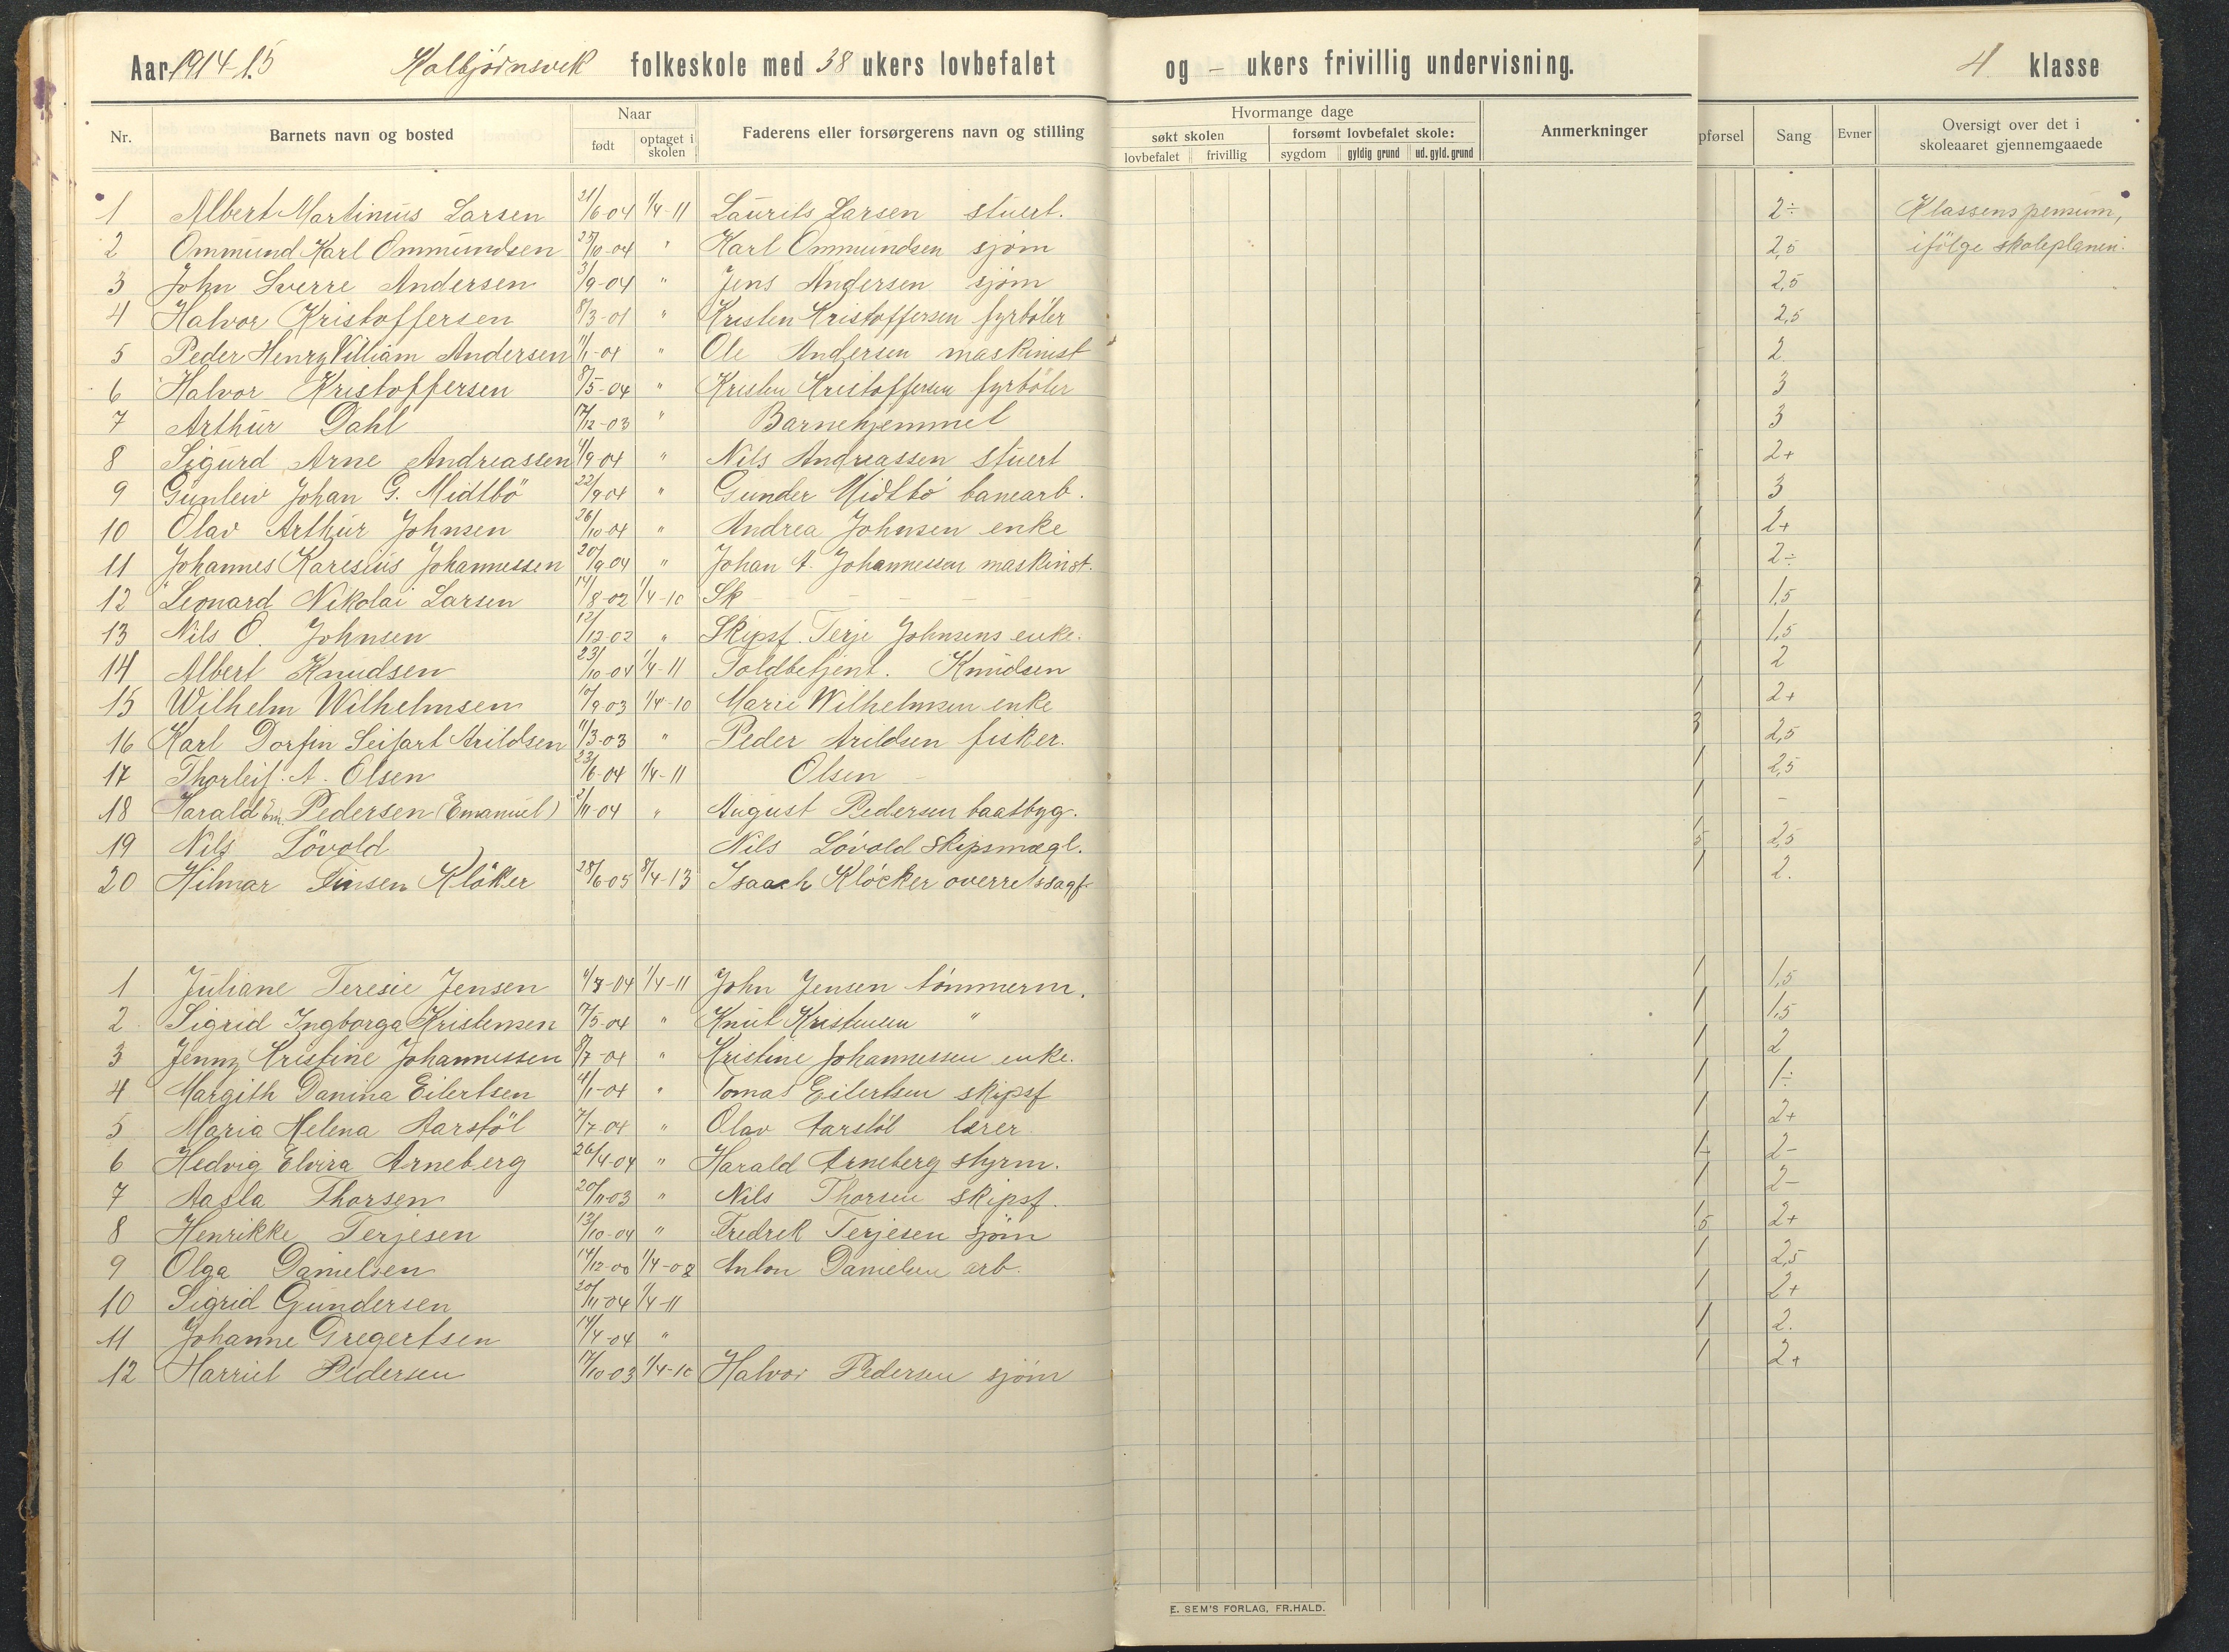 Aar 1914-15 Kolbjørnsvik folkeskole med 38 ukers lovbefalet og - ukers frivillig undervisning. 4 klasse
Nr. Barnets navn og bosted Naar født optaget i skolen Faderens eller forsørgerens navn og stilling Hvormange dage søkt skolen lovbefalet frivillig forsømt lovbefalet skole: sygdom gyldig grund ud. gyld. grund Anmerkninger pførsel Sang Evner Oversigt over det i skoleaaret gjennemgaaede
1 Albert Martinius Larsen 21/6-04 1/4-11 Laurits Larsen stuert. 2÷ Klassens pensum,
2 Ommund Karl Ommundsen 27/10-04 " Karl Ommundsen sjøm 2,5 ifölge skoleplanen.
3 John Sverre Andersen 3/9-04 " Jens Andersen sjøm 2,5
4 Halvor Kristoffersen 8/3-01 " Kristen Kristoffersen fyrböter 2,5
5 Peder Henry Villiam Andersen 11/1-04 " Ole Andersen maskinist 2
6 Halvor Kristoffersen 8/5-04 " Kristen Kristoffersen fyrböter 3
7 Arthur Dahl 17/12-03 " Barnehjemmet 3
8 Sigurd Arne Andreassen 4/9 04 " Nils Andreassen stuert 2+
9 Gunleiv Johan G. Midtbö 22/9 04 " Gunder Midtbö banearb. 3
10 Olav Arthur Johnsen 26/10-04 " Andrea Johnsen enke 2+
11 Johannes Karesius Johannessen 20/9 04 " Johan A. Johannessen maskinst. 2÷
12 Leonard Nikolai Larsen 14/8-02 1/4-10 Sk - - - - 1,5
13 Nils O. Johnsen 12/12-02 " Skipsf. Terje Johnsens enke. 1,5
14 Albert Knudsen 23/10-04 1/4-11 Toldbetjent. Knudsen 2
15 Wilhelm Wilhelmsen 10/9 03 1/4-10 Marie Wilhelmsen enke 2+
16 Karl Dorfin Seifart Arildsen 11/3-03 " Peder Arildsen fisker. 3 2,5
17 Thorleif. A. Olsen 23/6-04 1/4-11 Olsen 2,5
18 Harald Em. Pedersen (Emanuel) 2/11-04 " August Pedersen baatbyg. -
19 Nils Lövold Nils Lövold skipsmægl. 2,5
20 Hilmar Finsen Klöker 28/6-05 8/4-13 Isaach Klöcker overretssagf. 2.
1 Juliane Teresie Jensen 4/8-04 1/4-11 John Jensen tömmerm. 1,5
2 Sigrid Ingborga Kristensen 17/5-04 " Knut Kristensen " 1,5
3 Jenny Kristine Johannessen 8/7-04 " Kristine Johannessen enke. 2
4 Margith Danina Eilertsen 4/1-04 " Tomas Eilertsen skipsf 1÷
5 Maria Helena Aarsföl 7/7-04 " Olav Aarsföl lærer 2+
6 Hedvig Elvira Arneberg 26/4-04 " Harald Arneberg styrm. 2-
7 Aasla Thorsen 20/11-03 " Nils Thorsen skipsf. 2-
8 Henrikke Terjesen 13/10-04 " Fredrik Terjesen sjöm 2+
9 Olga Danielsen 14/12-00 1/4-08 Anton Danielsen arb. 2,5
10 Sigrid Gundersen 20/11-04 1/4-11 2+
11 Johanne Gregertsen 14/4-04 " 2.
12 Harriet Pedersen 17/10-03 1/4-10 Halvor Pedersen sjöm 2+
E. SEM'S FORLAG, FR.HALD.